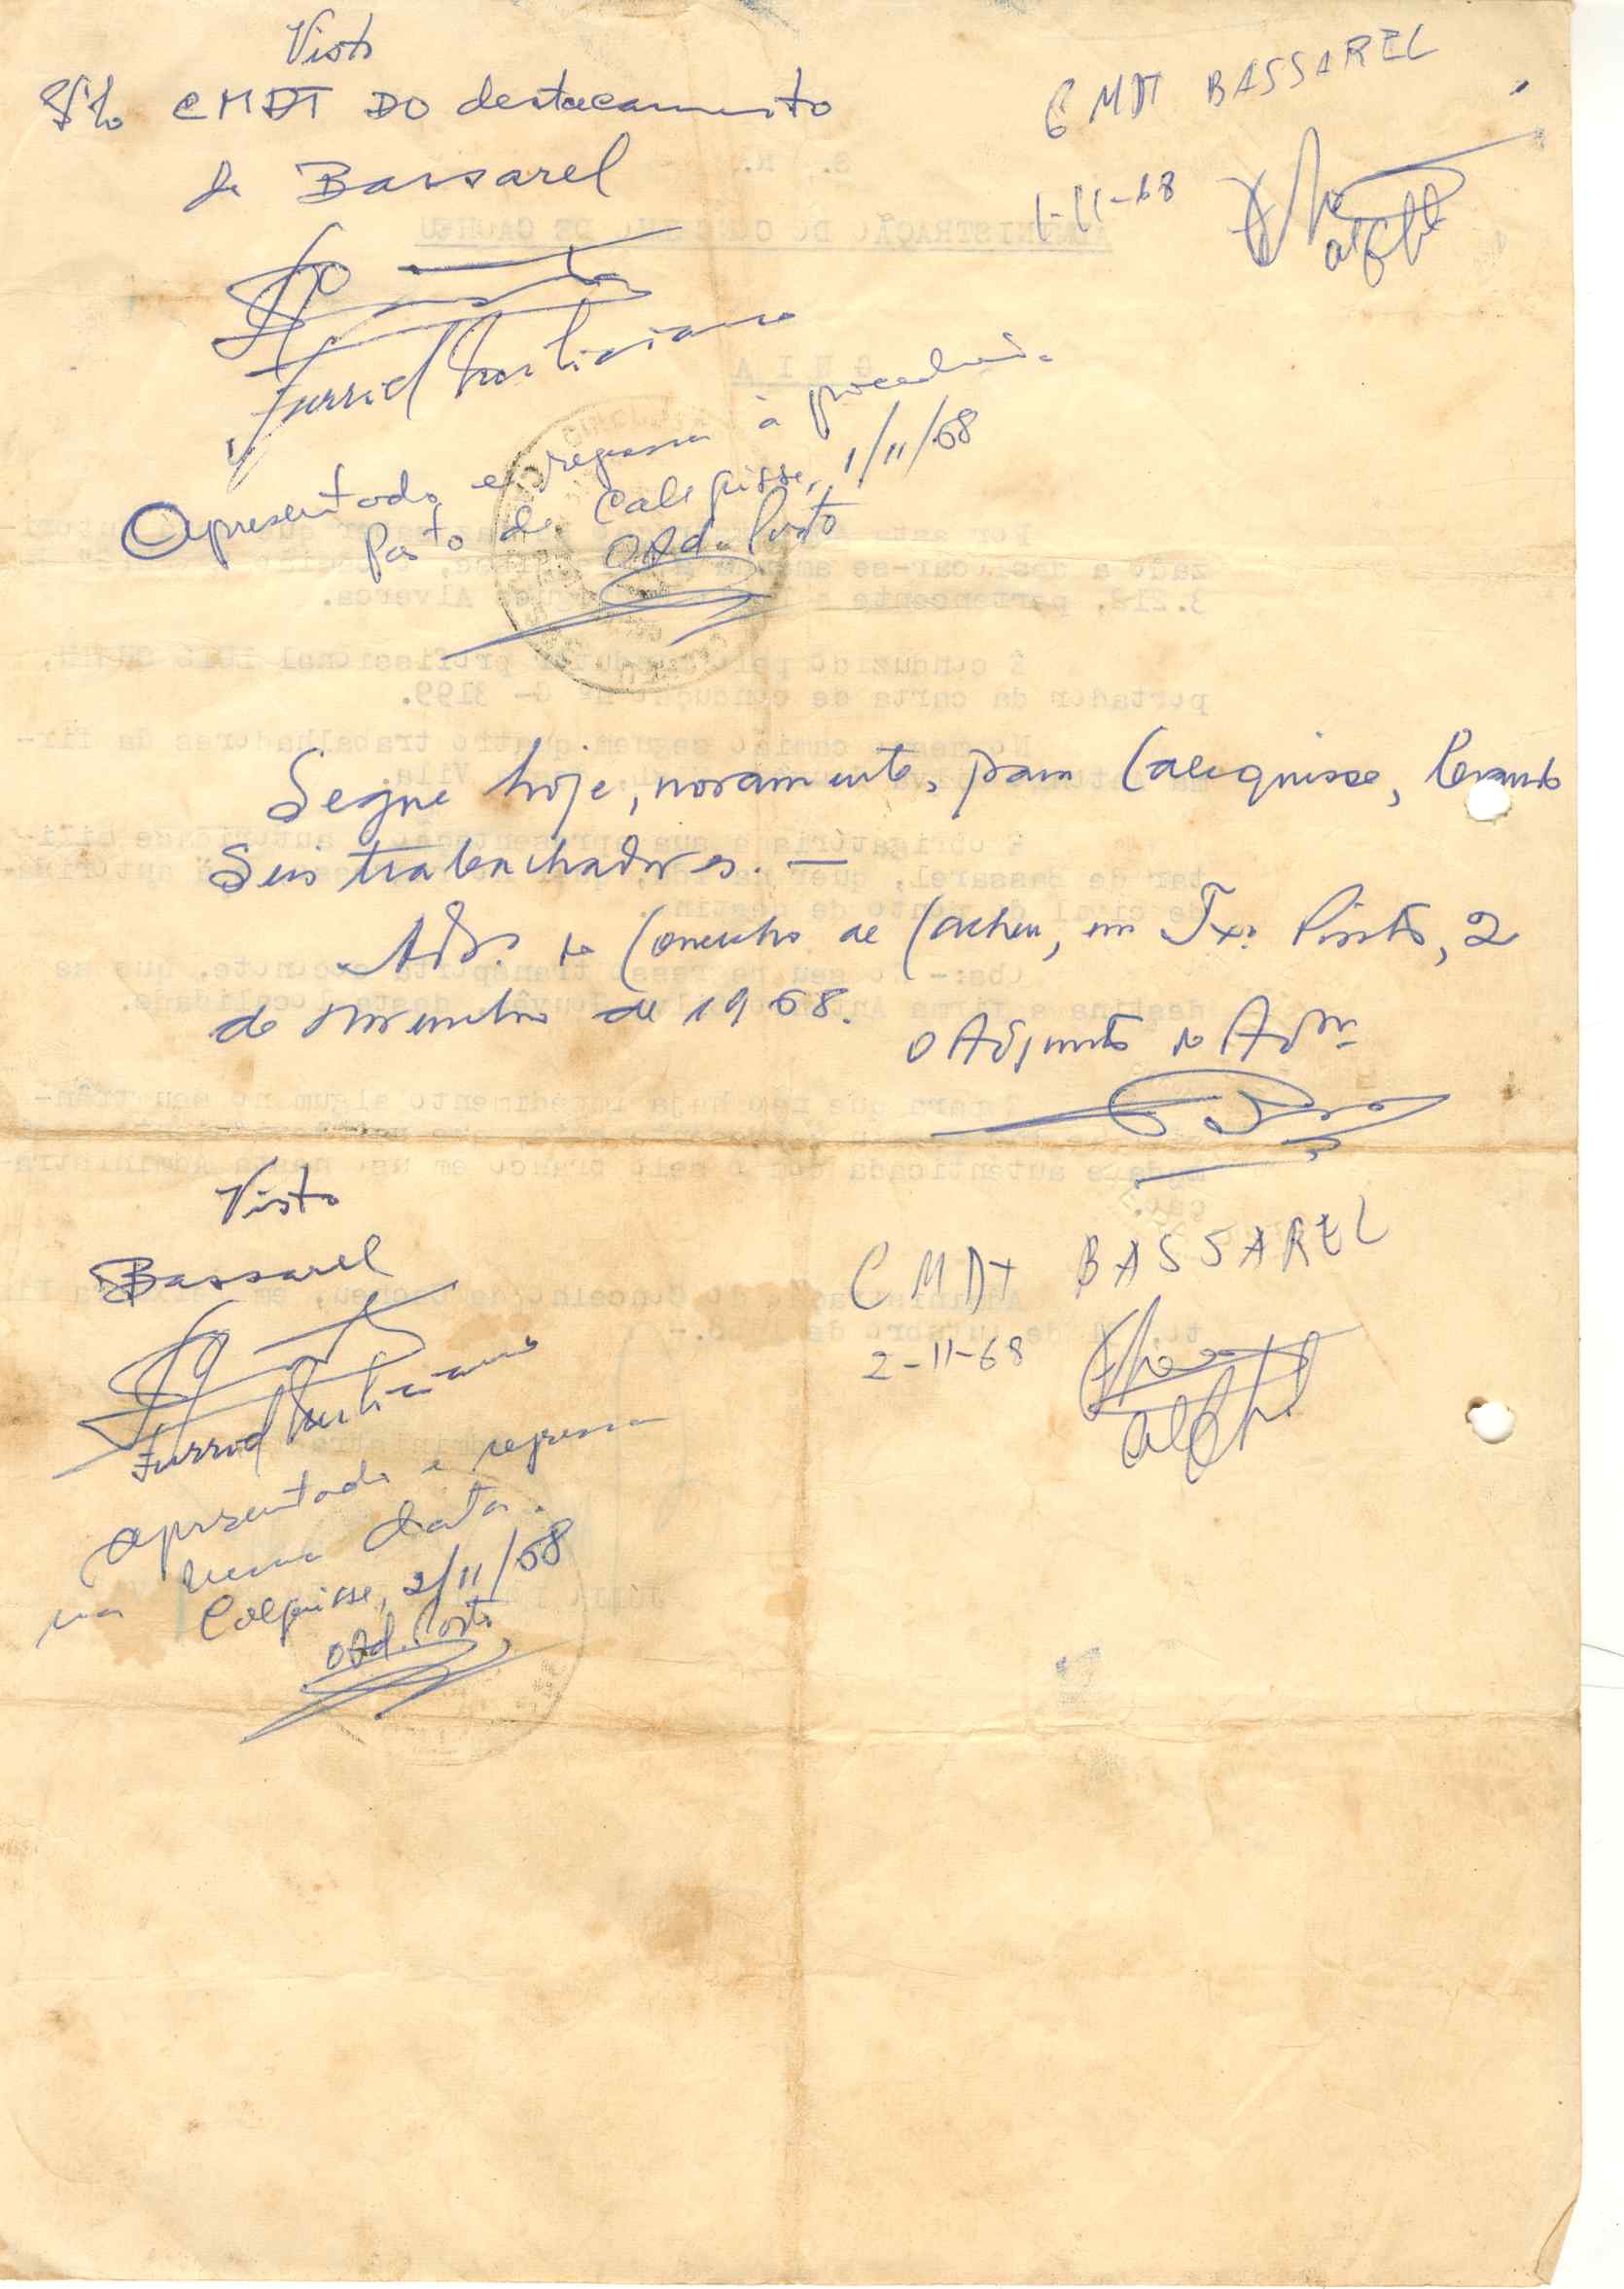 Visto
CMDT DO destacamento
de Bassarel
Furriel Miliciano
CMDT BASSAREL
1-11-68
Apresentado e regressa à procedência
Posto de Calequisse, 1/11/68
O Ad. Posto
Segue hoje, novamente, para Calequisse, levando
seis trabalhadores. —
Adm. do Concelho de Cacheu, em Txa. Pinto, 2
de Novembro de 1968.
O Adjunto do Adm.
Visto
Bassarel
Furriel Miliciano
CMDT BASSAREL
2-11-68
Apresentado e regressa
na mesma data.
Calequisse, 2/11/68
O Ad. Posto